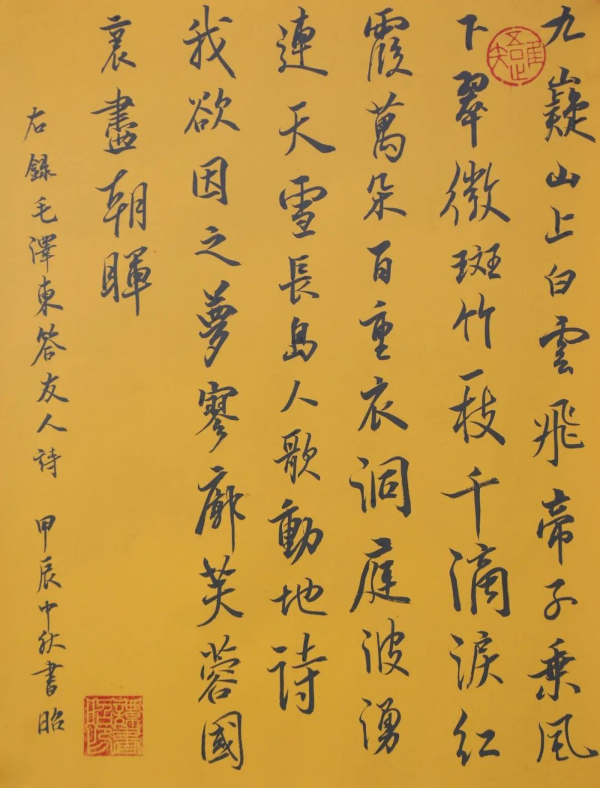 唯吾知足
九嶷山上白雲飛帝子乘風
下翠微斑竹一枝千滴淚紅
霞萬朵百重衣洞庭波湧
連天雪長島人歌動地詩
我欲因之夢寥廓芙蓉國
裏盡朝暉
右錄毛澤東答友人詩 甲辰中秋書昭